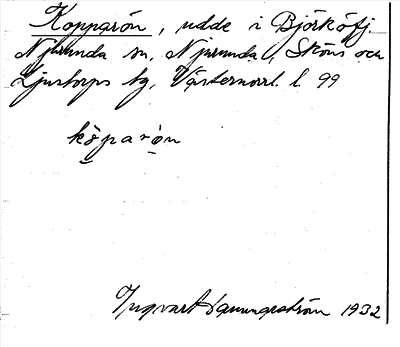 Kopparön, udde i Björköfj.
Njurunda sn, Njurunda, Sköns och
Ljustorps tg, Västernorrl. l. 99
köparön
Yngvart Vanungström 1932